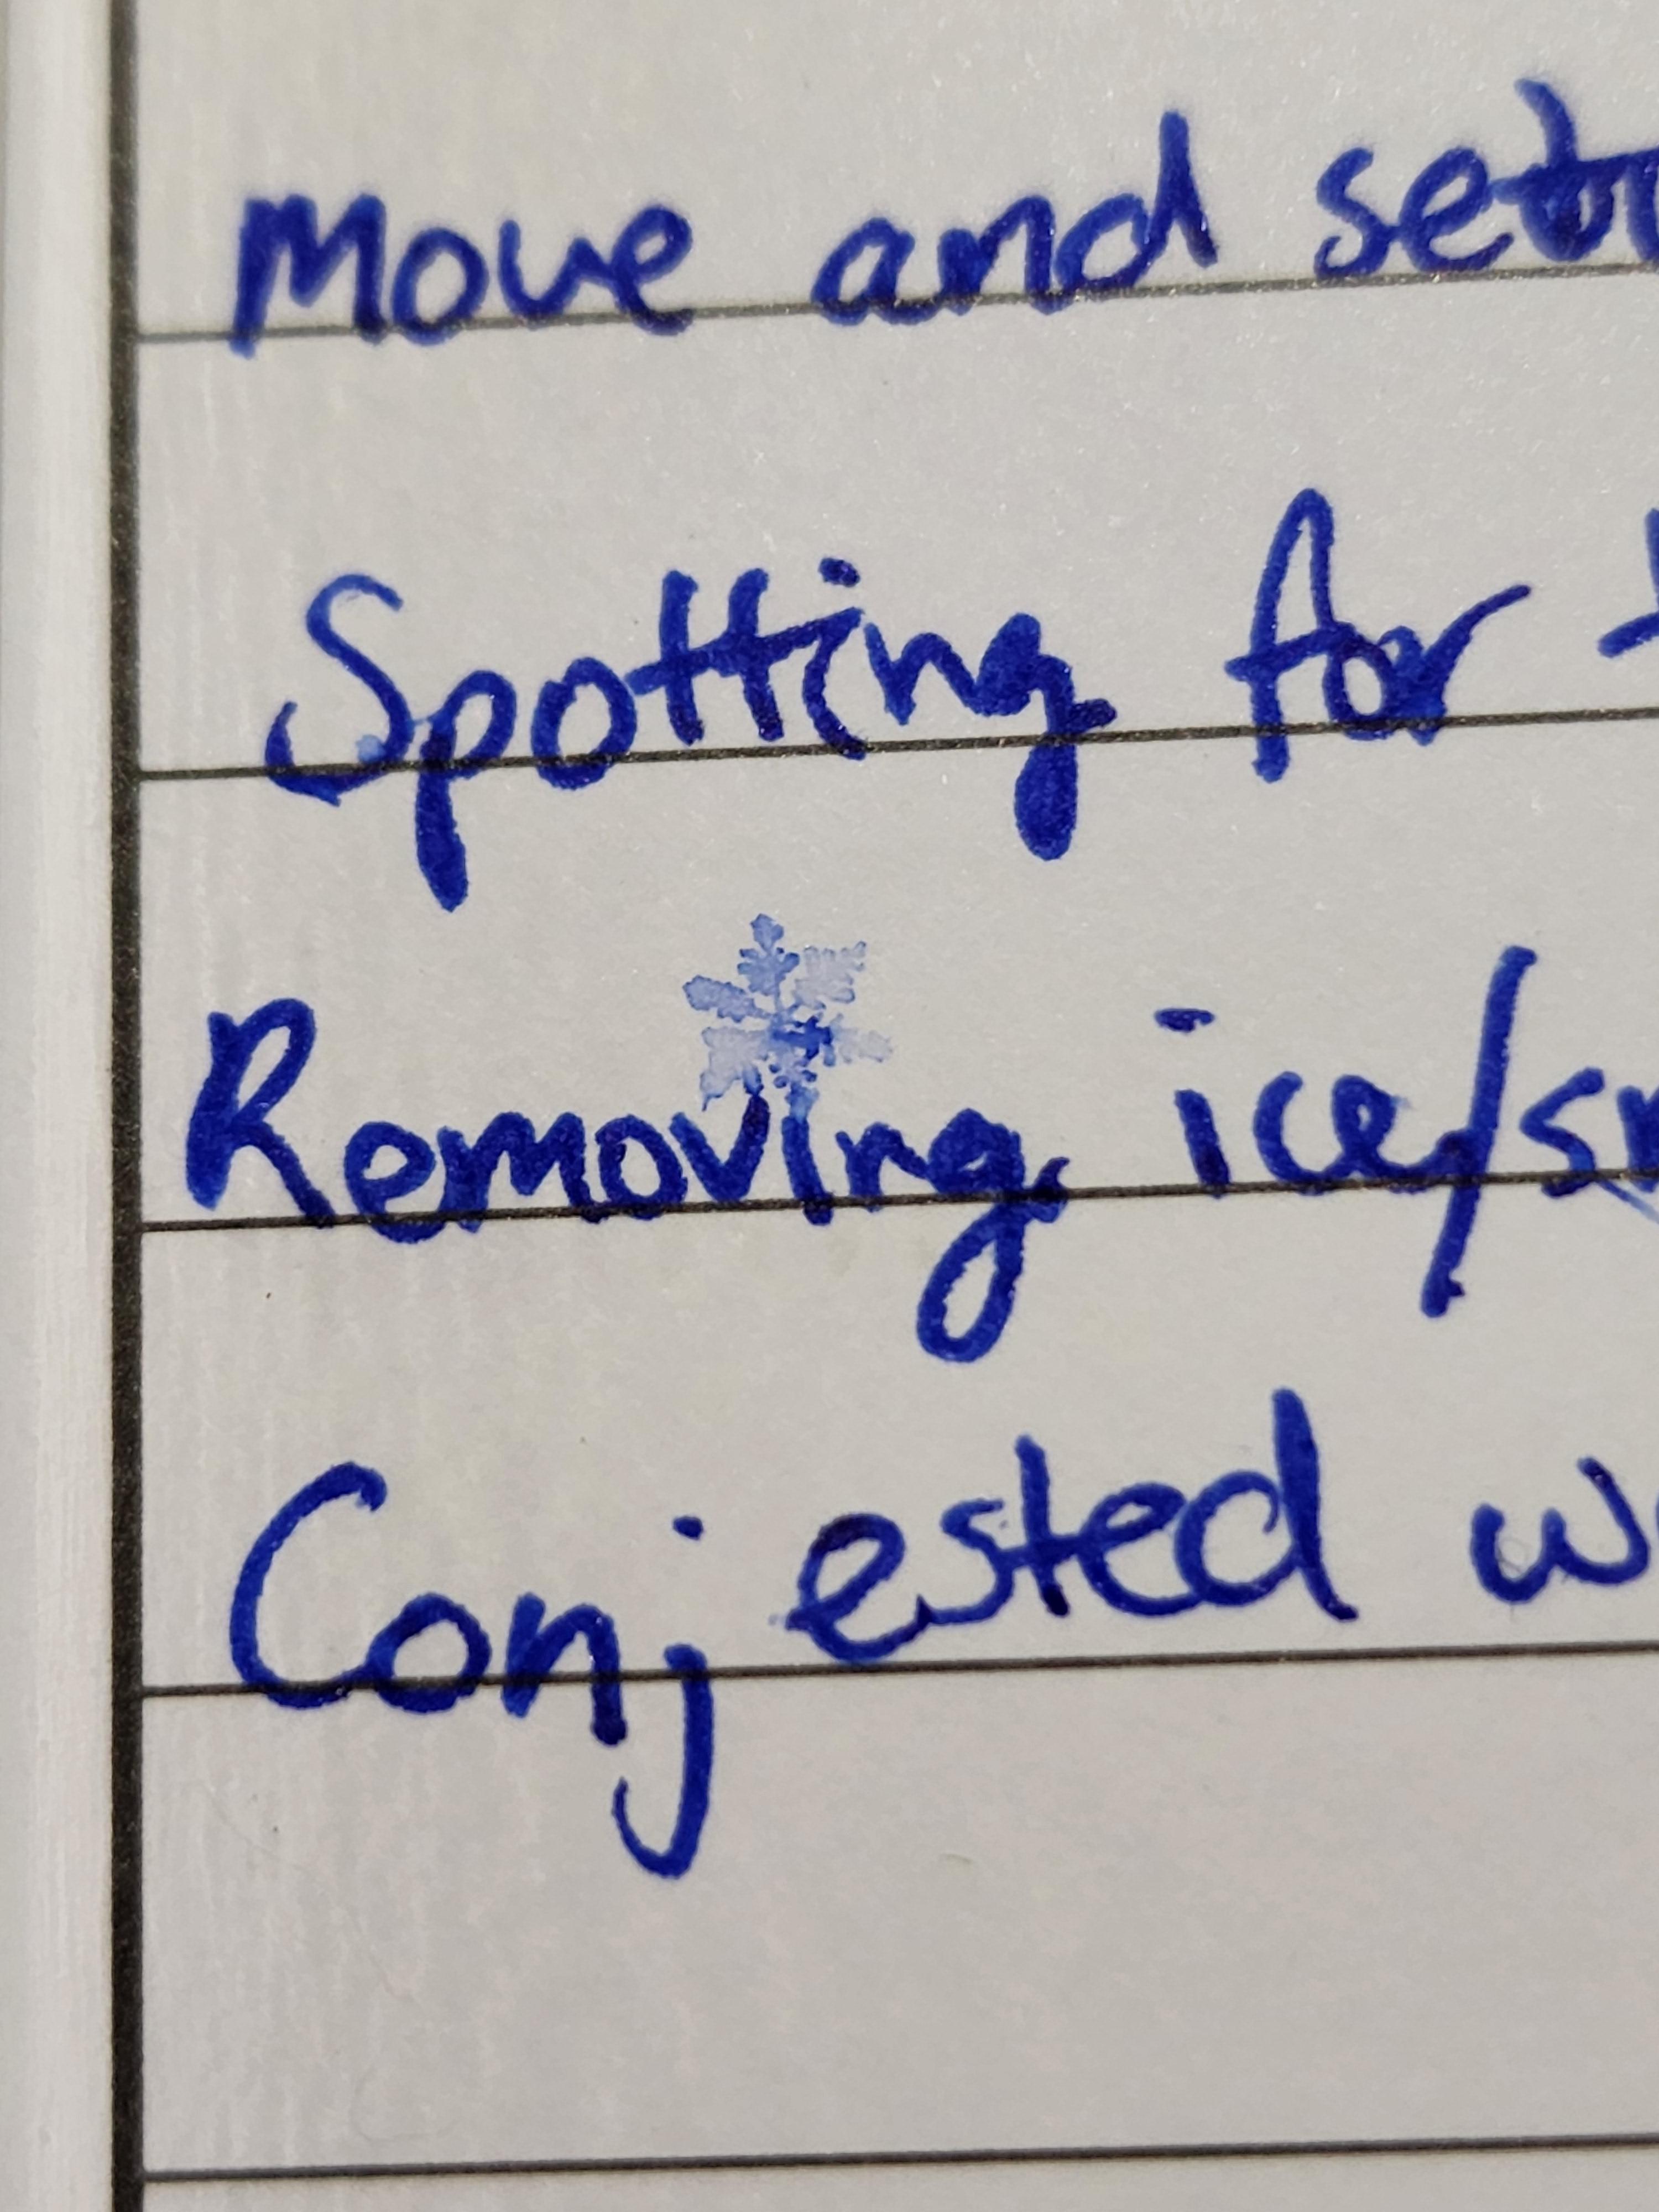 Move and
Spotting for
Removing ice/sn
Conjested